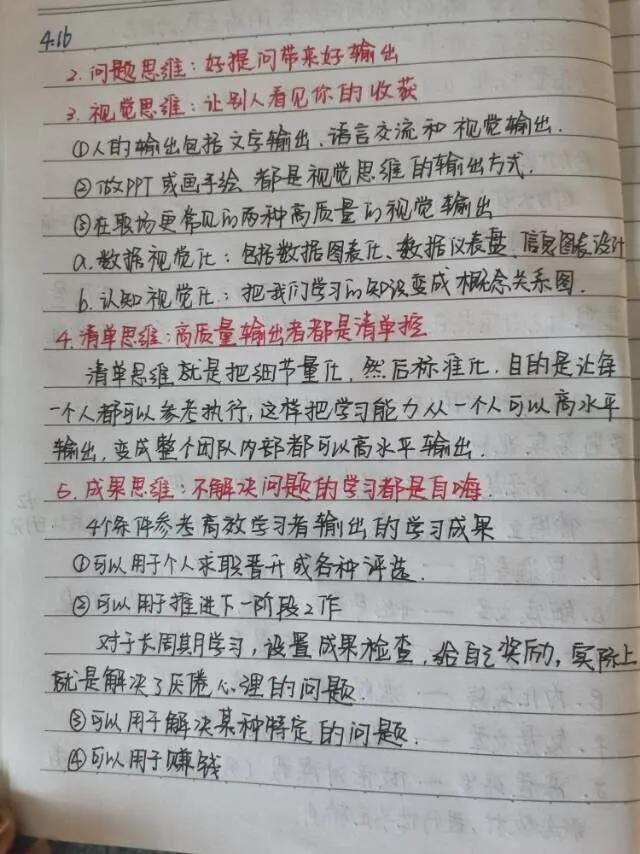 4.16
2. 问题思维：好提问带来好输出
3. 视觉思维：让别人看见你的收获
①人的输出包括文字输出、语言交流和视觉输出.
②做PPT或画手绘都是视觉思维的输出方式.
③在职场更常见的两种高质量的视觉输出
a. 数据视觉化：包括数据图表化、数据仪表盘、信息图表设计
b. 认知视觉化：把我们学习的知识变成概念关系图.
4. 清单思维：高质量输出者都是清单控
清单思维就是把细节量化，然后标准化，目的是让每
一个人都可以参考执行，这样把学习能力从一个人可以高水平
输出，变成整个团队内部都可以高水平输出.
5. 成果思维：不解决问题的学习都是自嗨.
4个条件参考高效学习者输出的学习成果
①可以用于个人求职晋升或各种评选.
②可以用于推进下一阶段工作
对于长周期学习，设置成果检查，给自己奖励，实际上
就是解决了厌倦心理的问题.
③可以用于解决某种特定的问题.
④可以用于赚钱